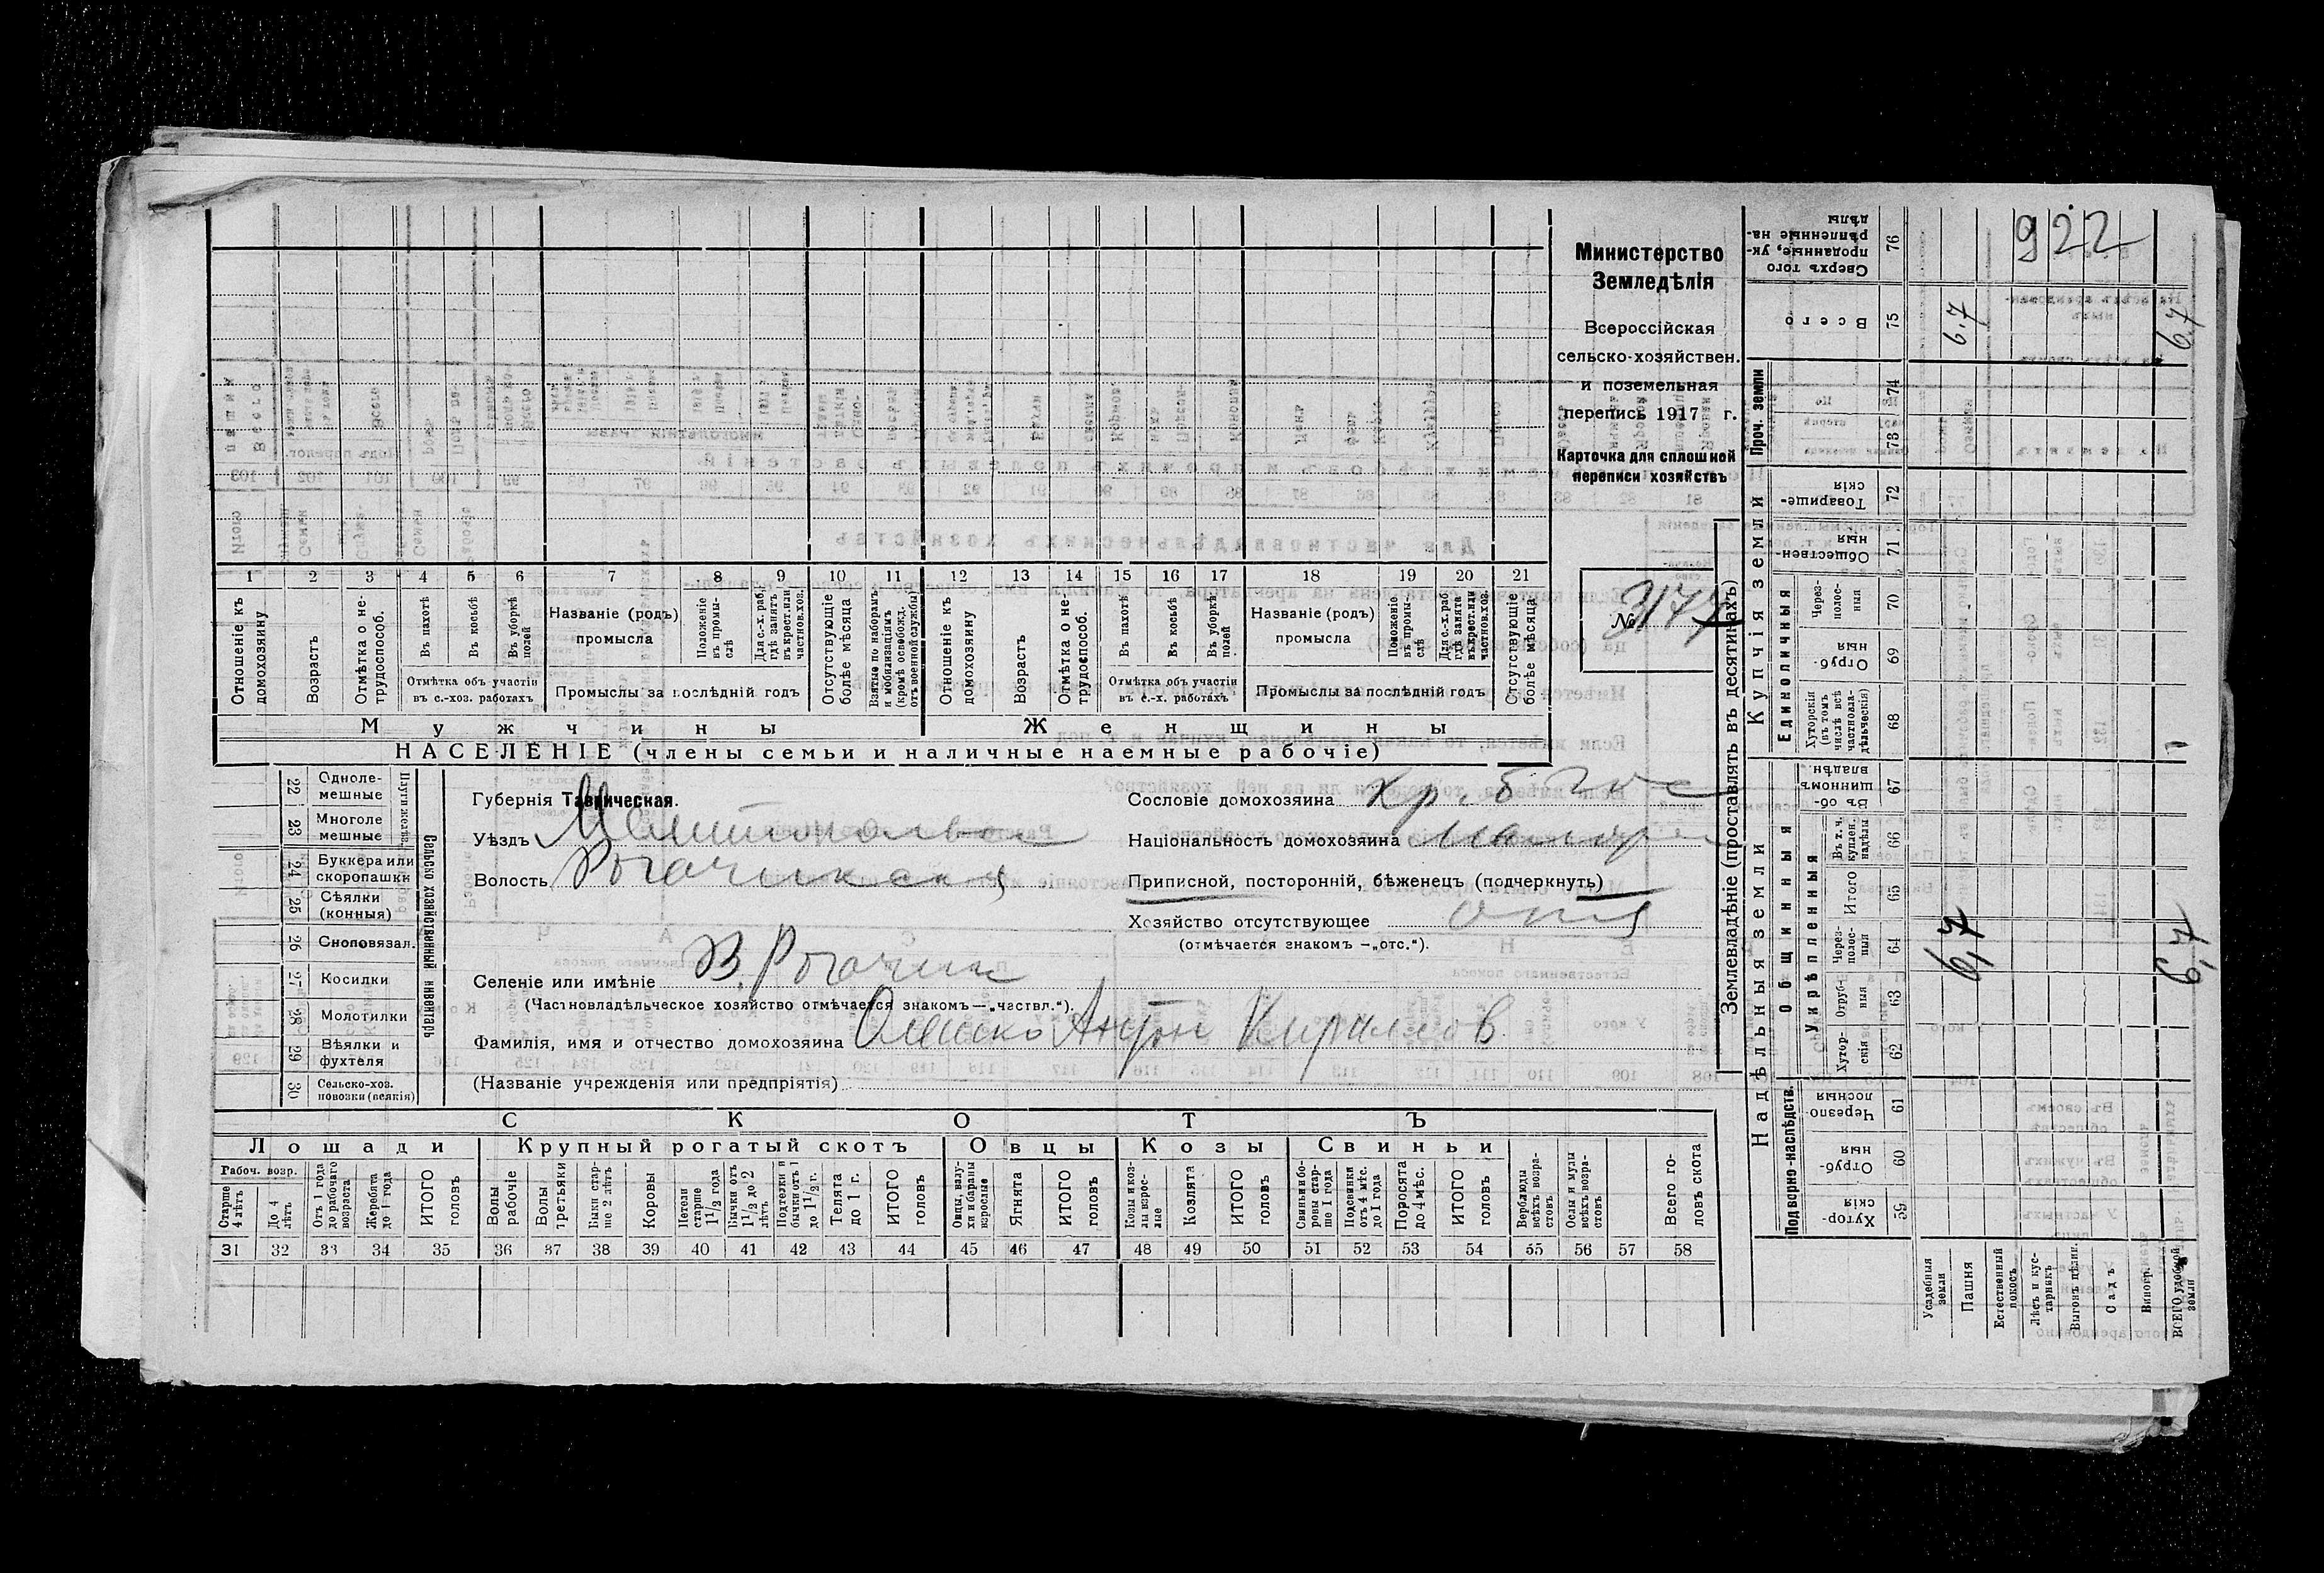 922
Министерство
Земледѣлія
Всероссійская
сельско-хозяйствен.
и поземельная
перепись 1917 г.
Карточка для сплошной
переписи хозяйствъ
№ 3177
1 2 3 4 5 6 7 8 9 10 11 12 13 14 15 16 17 18 19 20 21
Отношеніе къ домохозяину
Возрастъ
Отмѣтка о не-трудоспособ.
Въ пахотѣ
Въ косьбѣ
Въ уборкѣ полей
Отмѣтка объ участіи въ с.-хоз. работахъ
Названіе (родъ) промысла
Положеніе въ промы-слѣ
Для с.-х. раб. гдѣ занятъ въ крест. или частнов. хоз.
Промыслы за послѣдній годъ
Отсутствующіе болѣе мѣсяца
Взятые по наборамъ и мобилизаціямъ (кромѣ освобожд. отъ военной службы)
Отношеніе къ домохозяину
Возрастъ
Отмѣтка о не-трудоспособ.
Въ пахотѣ
Въ косьбѣ
Въ уборкѣ полей
Отмѣтка объ участіи въ с.-х. работахъ
Названіе (родъ) промысла
Положеніе въ промы-слѣ
Для с.-х. раб. гдѣ занята въ крест. или частнов. хоз.
Промыслы за послѣдній годъ
Отсутствующіе болѣе мѣсяца
Мужчины Женщины
НАСЕЛЕНІЕ (члены семьи и наличные наемные рабочіе)
22 Одноле-мешные
23 Многоле мешные
Плуги желѣз.
24 Буккера или скоропашки
25 Сѣялки (конныя)
26 Сноповязал.
27 Косилки
28 Молотилки
29 Вѣялки и фухтеля
30 Сельско-хоз. повозки (всякія)
Сельско хозяйственный инвентарь
Губернія Таврическая.
Уѣздъ Мелитопольск
Волость Рогачикская
Селеніе или имѣніе В. Рогачик
(Частновладѣльческое хозяйство отмѣчается знакомъ—„частвл.“).
Фамилія, имя и отчество домохозяина Антон Кириллов.
(Названіе учрежденія или предпріятія)
Сословіе домохозяина
Національность домохозяина
Приписной, посторонній, бѣженецъ (подчеркнуть)
Хозяйство отсутствующее отс
(отмѣчается знакомъ —„отс.“).
СКОТЪ
Лошади Крупный рогатый скотъ Овцы Козы Свиньи
Рабоч. возр.
Старше 4 лѣтъ
До 4 лѣтъ
Отъ 1 года до рабочаго возраста
Жеребята до 1 года
ИТОГО головъ
Волы рабочіе
Волы третьяки
Быки стар-ше 2 лѣтъ
Коровы
Нетели старше 1½ года
Бычки отъ 1½ до 2 лѣтъ
Подтелки и бычки отъ 1 до 1½ г.
Телята до 1 г.
ИТОГО головъ
Овцы, валу-хи и бараны взрослые
Ягнята
ИТОГО головъ
Козы и коз-лы взрос-лые
Козлята
ИТОГО головъ
Свиньи и бо-ровы стар-ше 1 года
Подсвинки отъ 4 мѣс. до 1 года
Поросята до 4 мѣс.
ИТОГО головъ
Верблюды всѣхъ возра-стовъ
Ослы и мулы всѣхъ возра-стовъ
Всего го-ловъ скота
31 32 33 34 35 36 37 38 39 40 41 42 43 44 45 46 47 48 49 50 51 52 53 54 55 56 57 58
Землевладѣніе (проставлять въ десятинахъ)
Надѣльныя земли
Подворно-наслѣдств.
Хутор-скія 59
Отруб-ныя 60
Черезпо-лосныя 61
Общинныя
Укрѣпленныя
Хутор-скія 62
Отруб-ныя 63
Через-полос-ныя 64
Итого 65
Въ т. ч. куплен. надѣлы 66
Въ об-щинномъ владѣн. 67
Купчія земли
Единоличныя
Хуторскія (въ томъ числѣ всѣ частновла-дѣльческія) 68
Отруб-ныя 69
Через-полос-ныя 70
Обществен-ныя 71
Товарище-скія 72
Проч. земли 73 74
Всего 75
Сверхъ того проданные, ук-рѣпленные на-дѣлы 76
Усадебныя земли
Пашня 6,7 6.7
Естественный покосъ
Лѣсъ и кус-тарникъ
Выгонъ цѣлин.
Садъ
Виногр.
ВСЕГО удобной земли 6,7 6.7